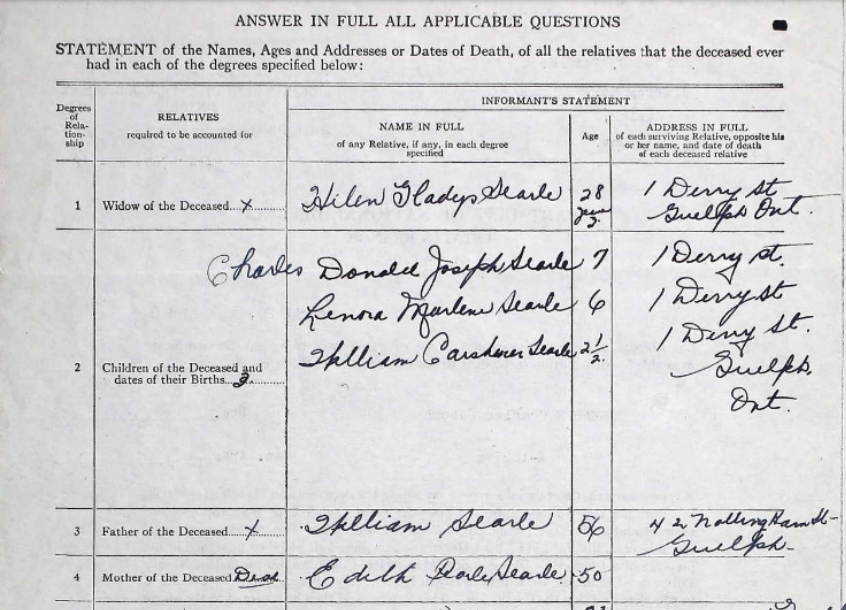 ANSWER IN FULL ALL APPLICABLE QUESTIONS
STATEMENT of the Names, Ages and Addresses or Dates of Death, of all the relatives that the deceased ever
had in each of the degrees specified below:
Degrees of Rela- tion- ship
RELATIVES
required to be accounted for
INFORMANT'S STATEMENT
NAME IN FULL
of any Relative, if any, in each degree
specified
Age
ADDRESS IN FULL
of each surviving Relative, opposite his
or her name, and date of death
of each deceased relative
1 Widow of the Deceased...x... Hilen Gladys Searle 28 1 Derry St
Guelph Ont.
Charles Donald Joseph Searle 7 1 Derry st.
Lenora Marlene Searle 6 1 Derry St
William Searle 2 1/2. 1 Derry St.
2 Children of the Deceased and
dates of their Births...3...
Guelph.
Ont.
3 Father of the Deceased...x... William Searle 56 42 Nottingham St-
Guelph-
4 Mother of the Deceased Edith Searle 50